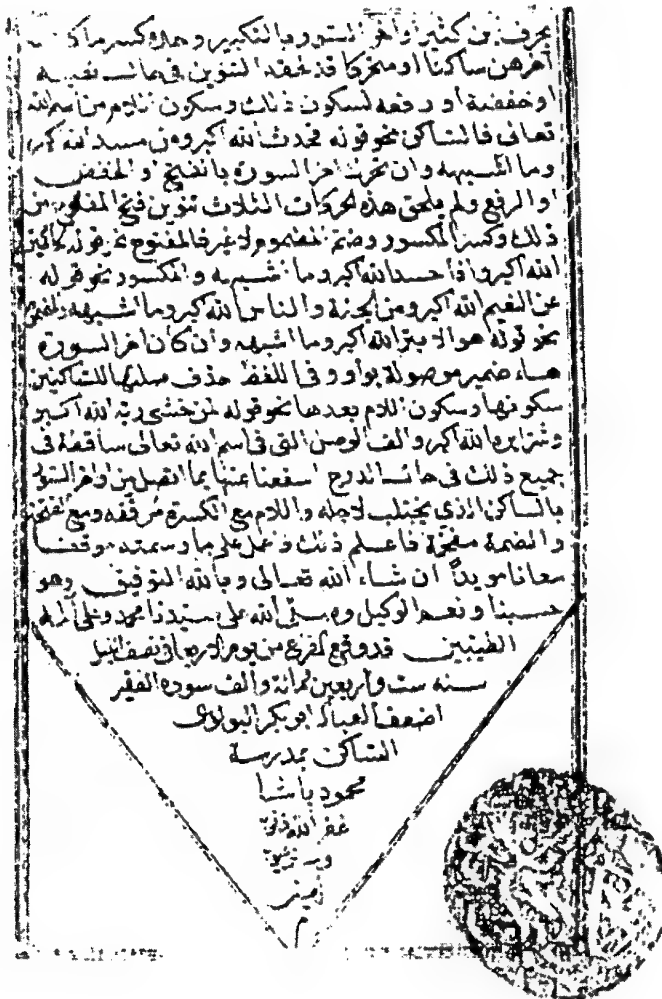 بحرف ابن كثير أواخر السور بالتكبير وحده كسر ما كان
آخرهن ساكنا او متحركا قد لحقه التنوين في حال نصبه
او خفضه او رفعه لسكون ذلك وسكون اللام من اسم الله
تعالى فالساكن نحو قوله فحدث الله اكبر ومن مسد الله اكبر
وما اشبهه وان تحرك اخر السورة بالفتح او الخفض
او الرفع ولم يلحق هذه الحركات الثلاث تنوين فتح المفتوح من
ذلك وكسر المكسور وضم المضموم لا غير فالمفتوح نحو قوله الحاكمين
الله اكبر واذا حسد الله اكبر وما اشبهه والمكسور نحو قوله
عن النعيم الله اكبر ومن الجنة والناس الله اكبر وما اشبهه والمضموم
نحو قوله هو الابتر الله اكبر وما اشبهه وان كان اخر السورة
هاء ضمير موصولة بواو في اللفظ حذف صلتها للساكنين
سكونها وسكون اللام بعدها نحو قوله لمن خشي ربه الله اكبر
وشرا يره الله اكبر والف الوصل التي في اسم الله تعالى ساقطة في
جميع ذلك في حال الدرج استغناء عنها بما اتصل من اواخر السور
بالساكن الذي يجتلب لاجله واللام مع الكسرة مرققه ومع الفتحة
والضمة مفخمة فاعلم ذلك وعمل على ما رسمته موفقا
معانا مويدا ان شاء الله تعالى وبالله التوفيق وهو
حسبنا ونعم الوكيل وصلى الله على سيدنا محمد وعلى آله
الطيبين قد وقع الفرغ من يوم الاربعا في نصف الليل
سنه ست واربعين ثمانة والف سوده الفقر
اضعف العباد ابو بكر البولاوى
الساكن بمدرسة
محمود باشا
غفر الله ذنوبه
وستر عيوبه
امين
م